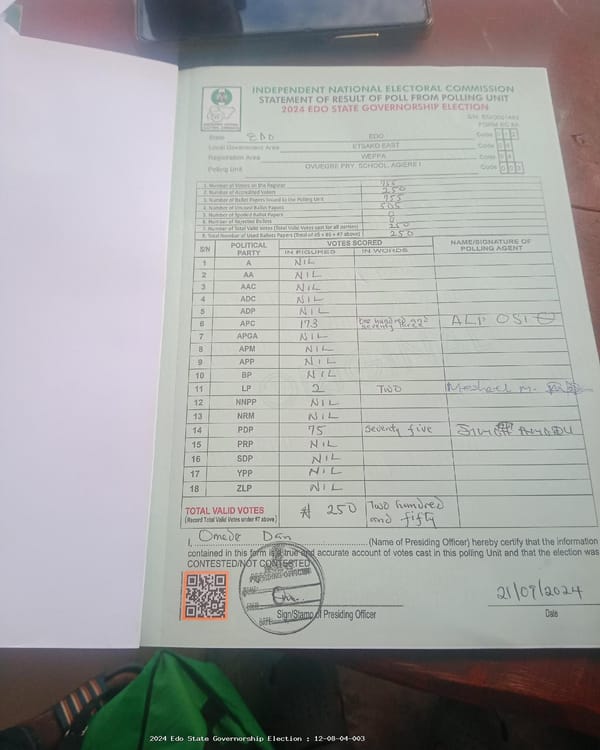 INDEPENDENT NATIONAL ELECTORAL COMMISSION
STATEMENT OF RESULT OF POLL FROM POLLING UNIT
2024 EDO STATE GOVERNORSHIP ELECTION
FORM EC 8A
State EDO EDO Code 12
Local Government Area ETSAKO EAST Code 08
Registration Area WEPPA Code 04
Polling Unit OVUEGBE PRY. SCHOOL, AGIERE I Code 003
1. Number of Voters on the Register 755
2. Number of Accredited Voters 250
3. Number of Ballot Papers Issued to the Polling Unit 755
4. Number of Unused Ballot Papers 505
5. Number of Spoiled Ballot Papers 0
6. Number of Rejected Ballots 0
7. Number of Total Valid Votes (Total Valid Votes cast for all parties) 250
8. Total Number of Used Ballots Papers (Total of #5 + #6 + #7 above) 250
S/N POLITICAL PARTY VOTES SCORED NAME/SIGNATURE OF POLLING AGENT
IN FIGURES IN WORDS
1 A NIL
2 AA NIL
3 AAC NIL
4 ADC NIL
5 ADP NIL
6 APC 173 One hundred and seventy three
7 APGA NIL
8 APM NIL
9 APP NIL
10 BP NIL
11 LP 2 TWO
12 NNPP NIL
13 NRM NIL
14 PDP 75 Seventy five
15 PRP NIL
16 SDP NIL
17 YPP NIL
18 ZLP NIL
TOTAL VALID VOTES 250 Two hundred and fifty
(Record Total Valid Votes under #7 above)
I, Omede Dan (Name of Presiding Officer) hereby certify that the information
contained in this form is a true and accurate account of votes cast in this polling Unit and that the election was
CONTESTED/NOT CONTESTED
PRESIDING OFFICER
21/09/2024
Sign/Stamp of Presiding Officer Date
2024 Edo State Governorship Election : 12-08-04-003